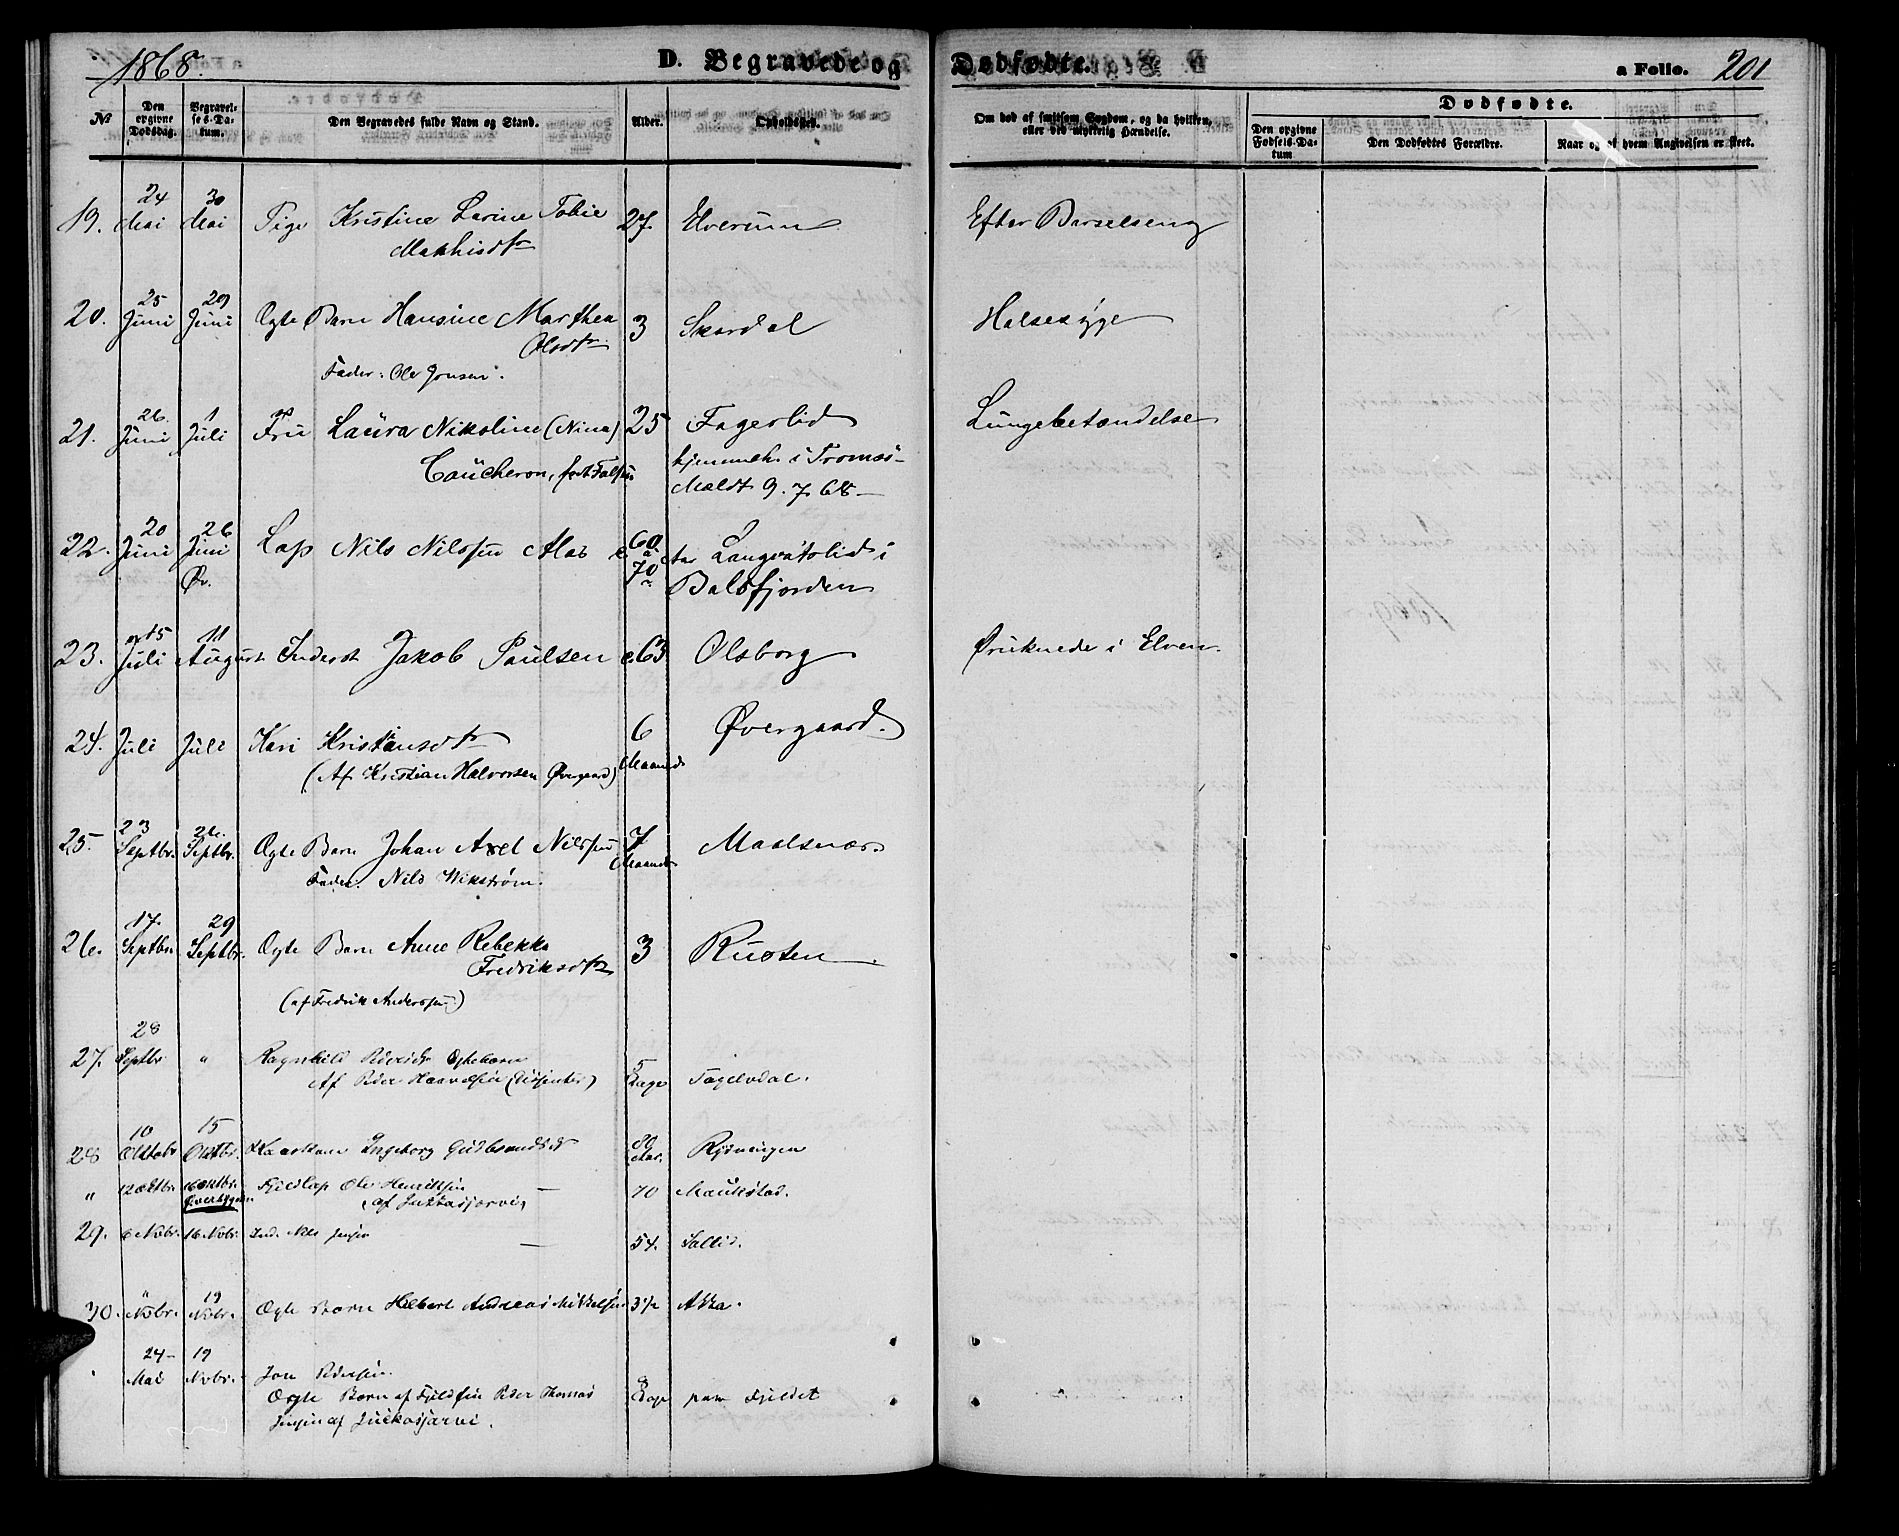 1868.
D. Begravede og Dødfødte.
a Folio. 201
№
Den opgivne Dødsdag.
Begravelses-Datum.
Den Begravedes fulde Navn og Stand.
Alder.
Opholdssted.
Om død af smitsom Sygdom, og da hvilken, eller ved ulykkelig Hændelse.
Dødfødte.
Den opgivne Fødsels-Datum
Den Dødfødtes Forældre.
Naar og af hvem Angivelsen er skeet.
24 30
19. Mai Mai Pige Kristine Larine Tobie 27 Elverum Efter Barselseng
Mathisdtr
25 29
20. Juni Juni Ægte Barn Hansine Marthea 3 Skardal Halsesyge
Olsdtr.
Fader: Ole Jonsen.
26. 1
21. Juni Juli Fru Laura Nikoline (Nina) 25 Fagerlid Lungebetændelse
Caucheron, født Falsen hjemmeh. i Tromsö
Meldt 9. 7. 68
20 26
22. Juni Juni Lap Nils Nilssen 60 Aar i
Øv. 70 Balsfjorden
15 11
23. Juli August Inderst Jakob Paulsen c. 63 Olsborg Druknede i Elven.
24. Juli Juli Kari Kristiansdtr 6 Øvergaard.
(Af Kristian Halvorsen Øvergaard) Maaneder
23 26.
25. Septbr. Septbr. Ægte Barn Johan Axel Nilssen 7 Maalsnæs.
Fader: Nils Wikstrøm. Maaneder
17. 29
26. Septbr. Septbr. Ægte Barn Anne Rebekka 3 Rusten.
Fredriksdtr
(af Fredrik Anderssen)
28
27. Septbr " Ragnhild Pedersdtr Ægtebarn 5
Af Peder (Dissenter) Dage Fagelvdal.
10 15
28 Oktobr Oktbr. Ingeborg Gudbrandsdtr 80 Aar.
" 12 Oktbr. 16 Oktbr. Fjeldlap Ole Henriksen — 70 Maukstad.
Øverbygden (af Jukkasjærvi)
29. 6 Novbr. 16 Novbr. Ind. Nils Jensen — 54. Sollid.
" 19
30. Novbr. Novbr. Ægte Barn Helbert Andreas Mikkelsen 3½ Akka.
24 19
Mai Novbr. Jon Pedersen.
Ægte Barn af Fjeldfin Peder Thomas Dage paa Fjeldet
af Jukkasjærvi.